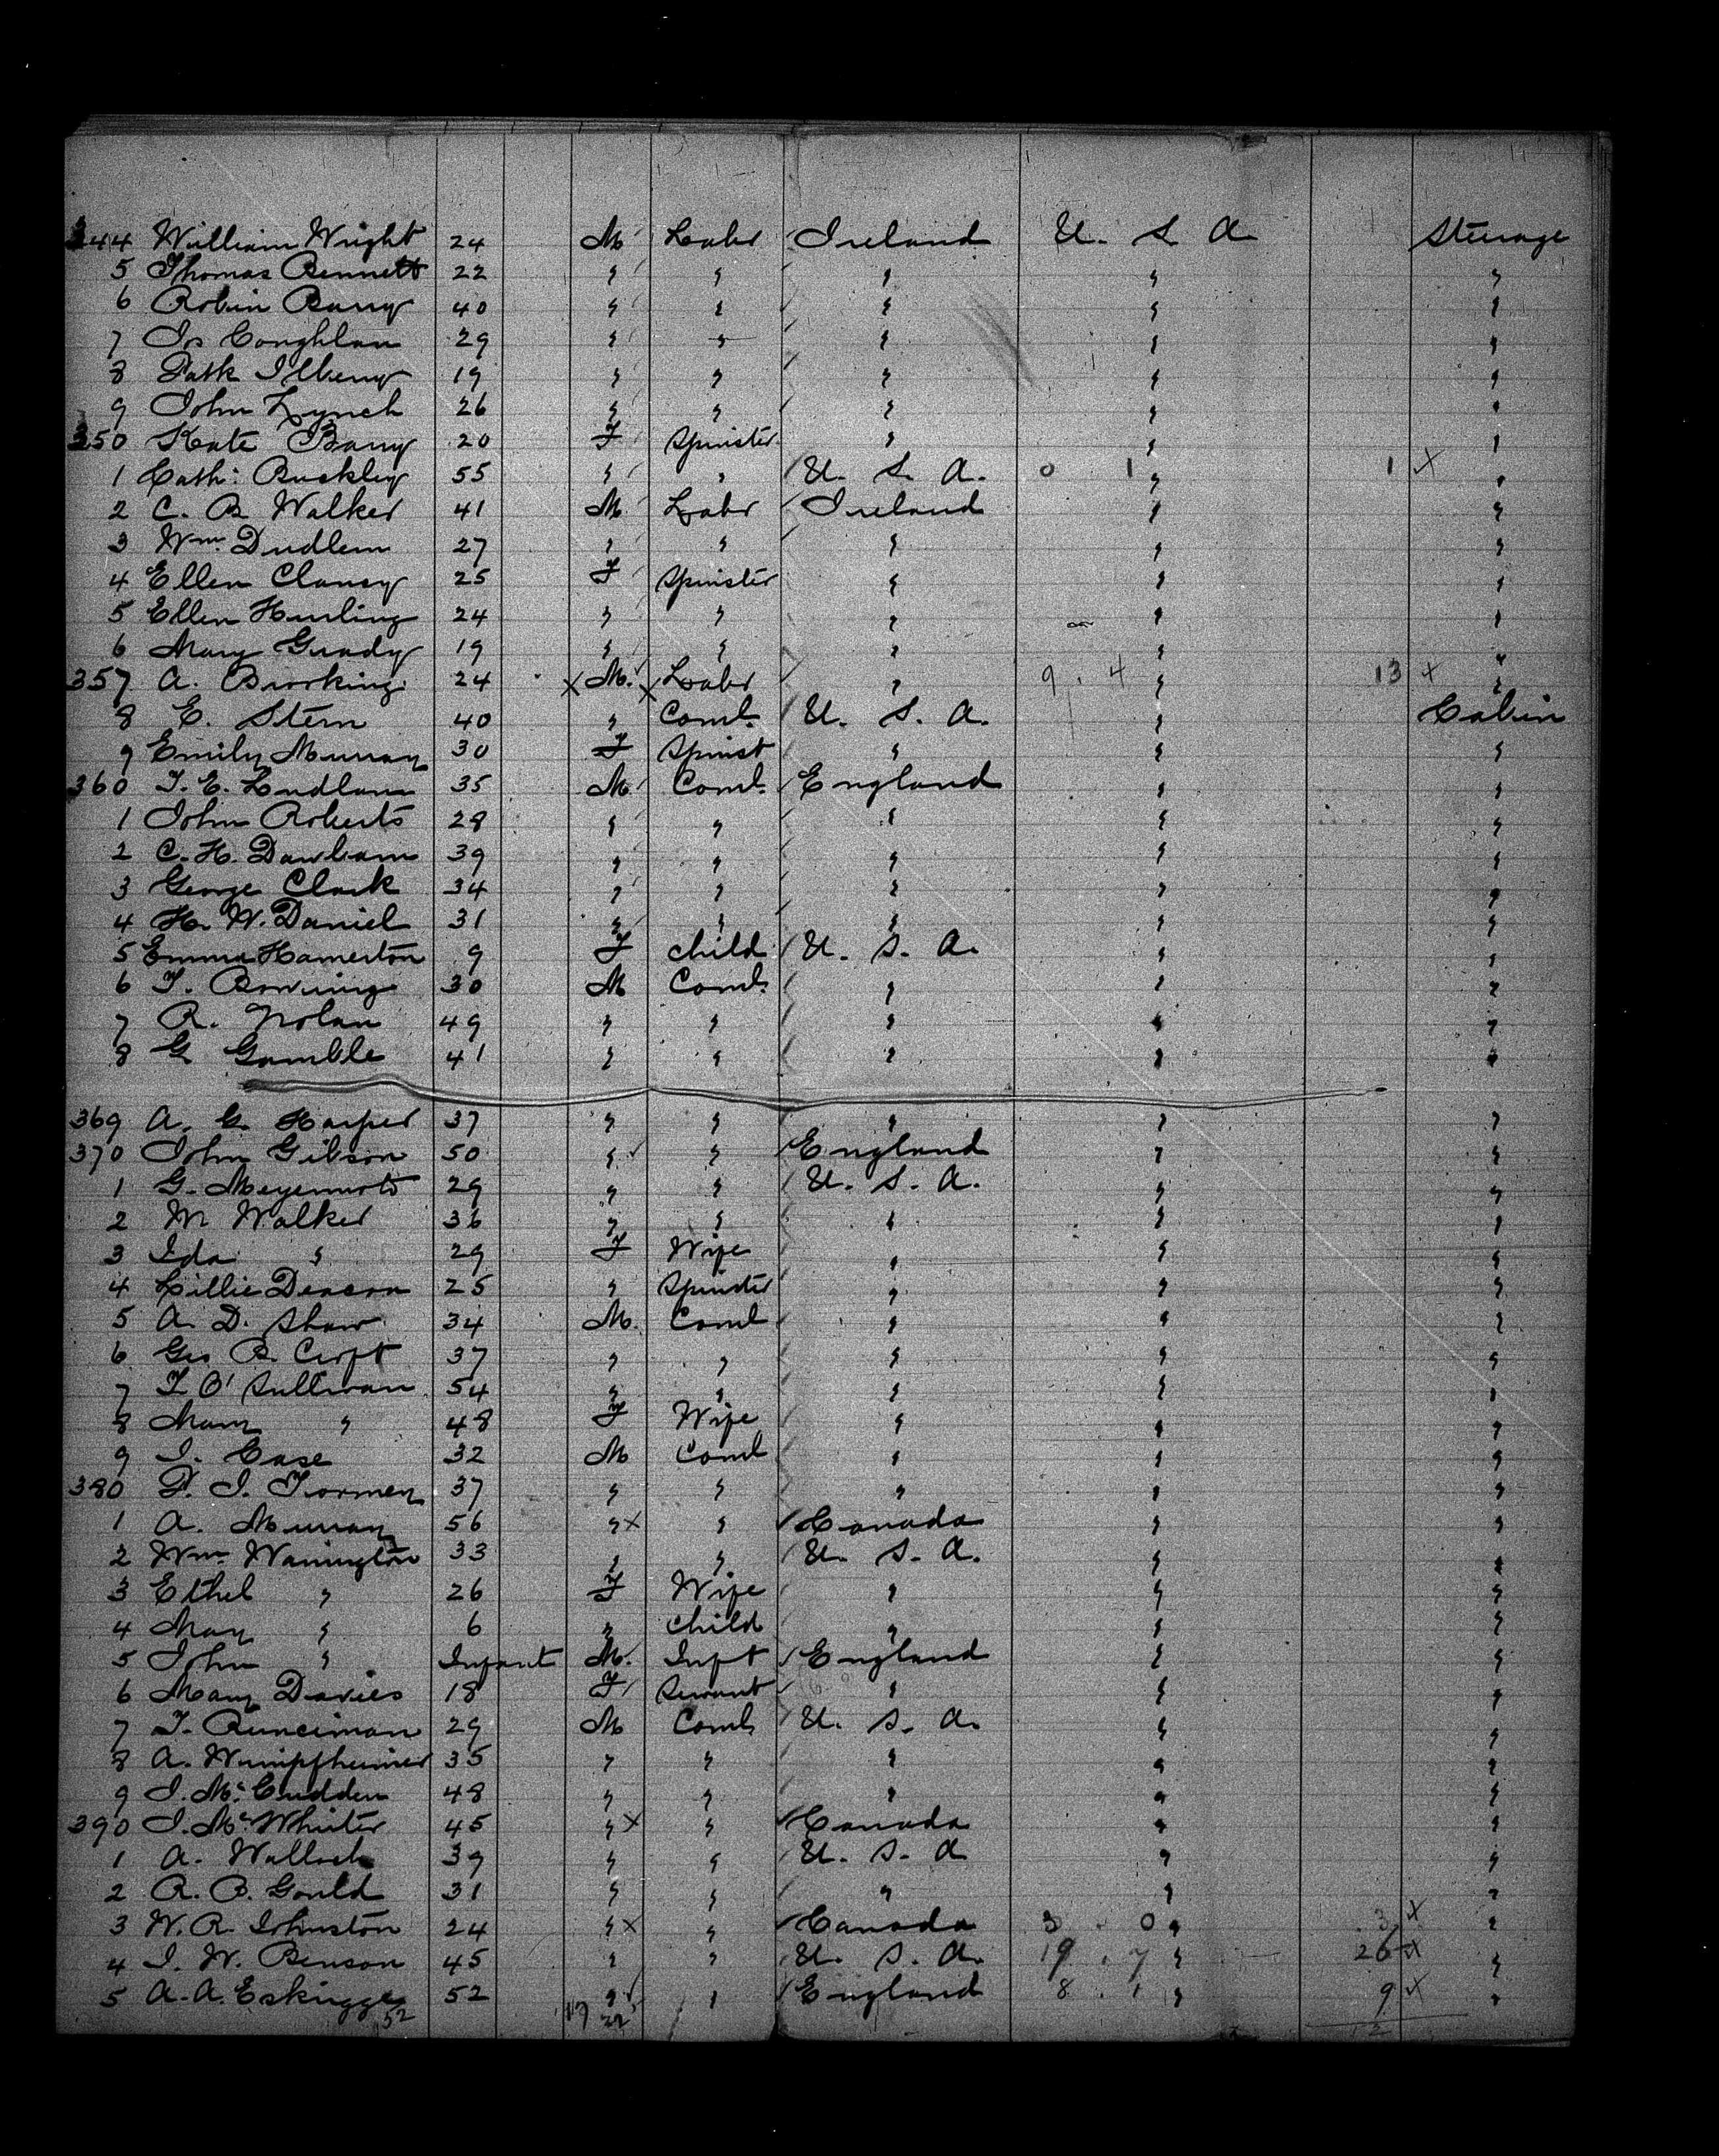 344 William Wright 24 M Labr Ireland U. S. A Steerage
5 Thomas Bennett 22 " " " " "
6 Robin Barry 40 " " " " "
7 Jos Coughlan 29 " " " " "
8 Patk 19 " " " " "
9 John Lynch 26 " " " " "
350 Kate Barry 20 F Spinster " " "
1 Cath: Buckley 55 " " U. S. A. 0 1 " 1 x "
2 C. B. Walker 41 M Labr Ireland " "
3 Wm. 27 " " " " "
4 Ellen Clancy 25 F Spinster " " "
5 Ellen Hurling 24 " " " " "
6 Mary Grady 19 " " " " "
357 A. Brooking 24 x M. x Labr " 9 . 4 " 13 x "
8 E. Stern 40 " Coml. U. S. A. " Cabin
9 Emily Murray 30 F Spinst " " "
360 T. E. Ludlam 35 M Coml. England " "
1 John Roberts 28 " " " " "
2 C. H. 39 " " " " "
3 George Clark 34 " " " " "
4 H. W. Daniel 31 " " " " "
5 Emma Hamerton 9 F child U. S. A. " "
6 T. 30 M Coml. " " "
7 R. Nolan 49 " " " " "
8 G Gamble 41 " " " " "
369 A. G. Harper 37 " " " " "
370 John Gibson 50 " " England " "
1 G. 29 " " U. S. A. " "
2 M Walker 36 " " " " "
3 Ida " 29 F Wife " " "
4 Lillie Deacon 25 " Spinster " " "
5 A. D. Shaw 34 M. Coml " " "
6 Geo B. Croft 37 " " " " "
7 T O'Sullivan 54 " " " " "
8 Mary " 48 F Wife " " "
9 J. Case 32 M Coml " " "
380 J. 37 " " " " "
1 A. Murray 56 " x " Canada " "
2 Wm. Warrington 33 " " U. S. A. " "
3 Ethel " 26 F Wife " " "
4 May " 6 " Child " " "
5 John " Infant M. Inft England " "
6 Mary Davies 18 F Servant " " "
7 T. Runciman 29 M Coml. U. S. A. " "
8 A. Wimpfheimer 35 " " " " "
9 J. McCudden 48 " " " " "
390 J. McWhirter 45 " x " Canada " "
1 A. Wallach 39 " " U. S. A " "
2 R. B. Gould 31 " " " " "
3 W. R. Johnston 24 " x " Canada 3 . 0 " 3 x "
4 J. W. Benson 45 " " U. S. A. 19 . 7 " 26 x "
5 A. A. Eskrigge 52 " " England 8 . 1 " 9 x "
52